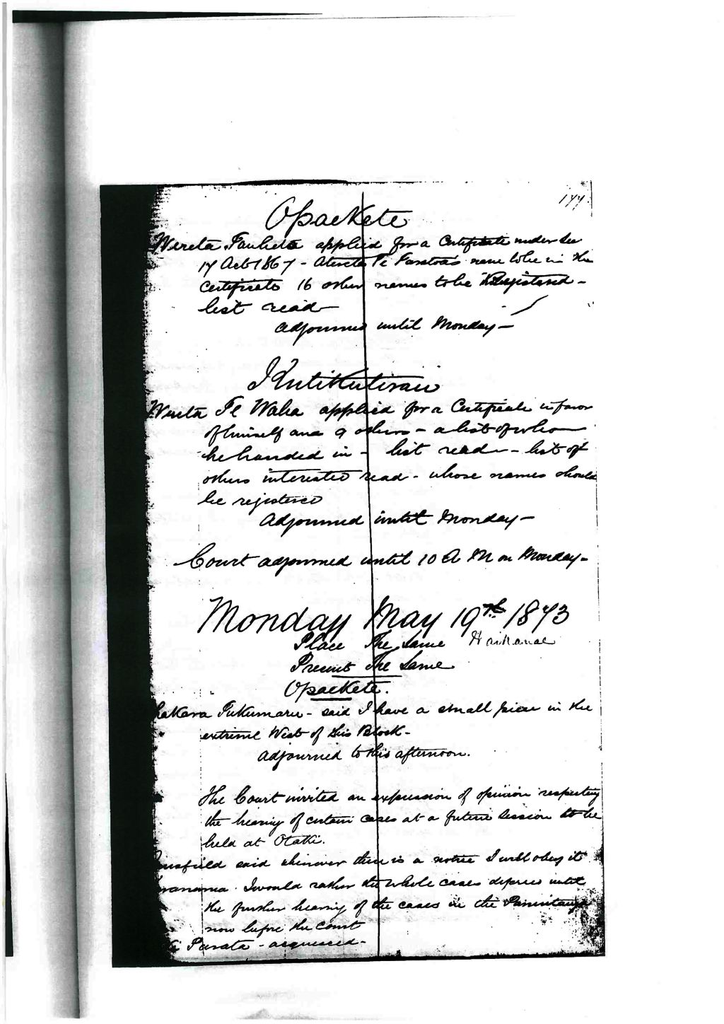 177.
Opaekete
Wereta Tauheta applied for a Certificate under Sec
17 Act 1867 - name to be in the
Certificate 16 other names to be Registered -
list read -
adjourned until Monday -
Kutikutirau
Te Waha applied for a Certificate in favor
of himself and 9 others - a list of whom
he handed in - list read - list of
others interested read - whose names should
be registered
Adjourned until Monday -
Court adjourned until 10 A M on Monday -
Monday May 19th 1873
Place The Same Waikanae
Present The Same
Opaekete.
Tukumaru - said I have a small piece in the
extreme West of this Block -
adjourned to this afternoon.
The Court invited an expression of opinion respecting
the hearing of certain cases at a future session to be
held at Otaki.
said there is a notice I will obey it
I would rather the whole cases until
the further hearing of the cases in the
now before the Court
Parata - acquiesced -